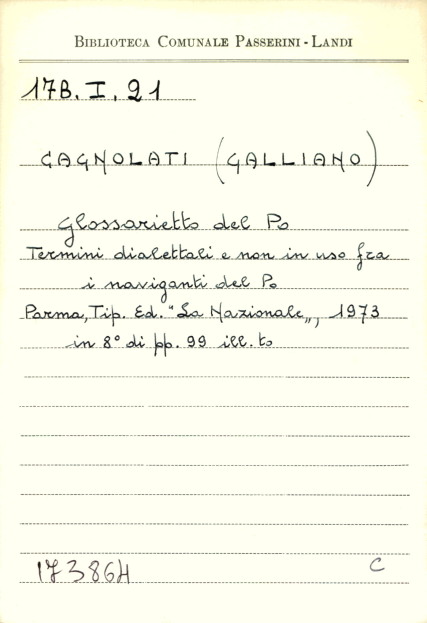 BIBLIOTECA COMUNALE PASSERINI - LANDI
17B. I. 21
CAGNOLATI (GALLIANO)
Glossarietto del Po
Termini dialettali e non in uso fra
i naviganti del Po
Parma, Tip. Ed. "La Nazionale„, 1973
in 8° di pp. 99 ill.to
173864
C